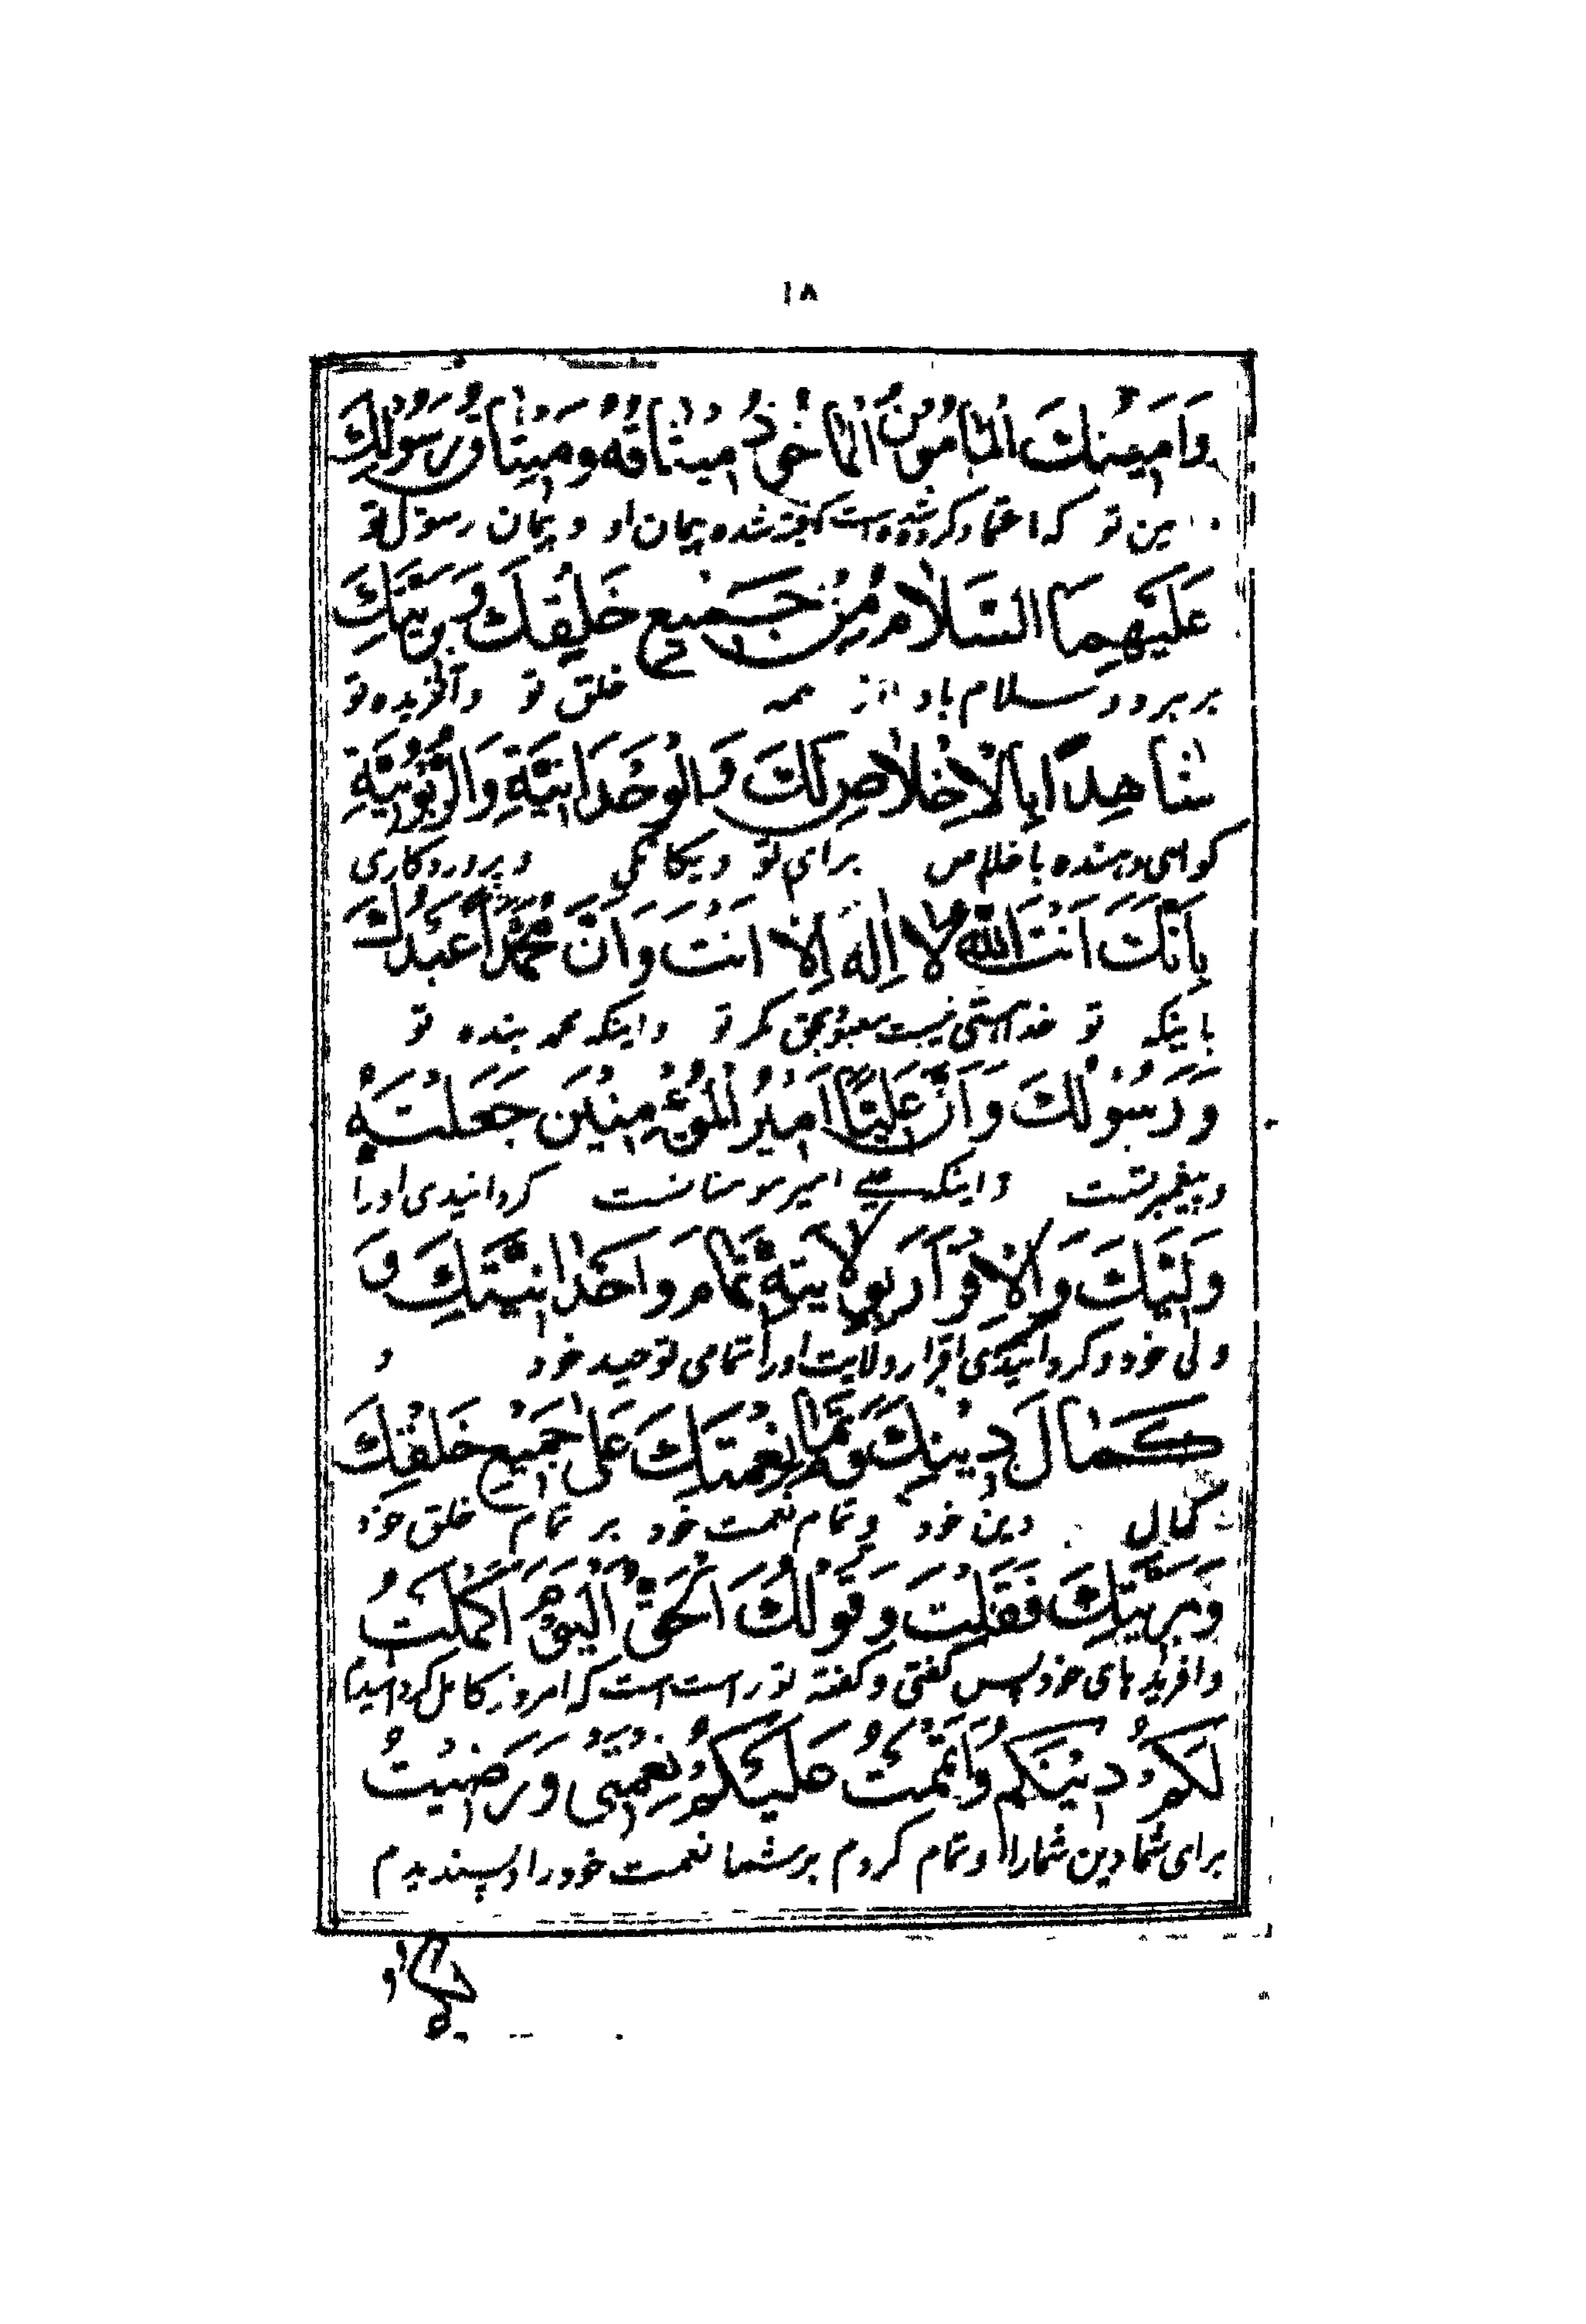 ١٨
وَاَمِینِكَ الْمَاْمُوْنِ الْمَاْخُوْذِ مِیْثَاقُهٗ وَمِیْثَاقُ رَسُوْلِكَ
ین تو که اعتماد کرده شده است گرفته شده پیمان او و پیمان رسول تو
عَلَیْهِمَا السَّلَامُ مِنْ جَمِیْعِ خَلْقِكَ وَبَرِیَّتِكَ
بر هر دو سلام باد از همه خلق تو و آفریده تو
شَاهِدًا بِالْاِخْلَاصِ لَكَ وَالْوَحْدَانِیَّةِ وَالرُّبُوْبِیَّةِ
گواهی دهنده باخلاص برای تو و یگانگی و پروردگاری
بِاَنَّكَ اَنْتَ اللّٰهُ لَا اِلٰهَ اِلَّا اَنْتَ وَاَنَّ مُحَمَّدًا عَبْدُكَ
باینکه تو خدا هستی نیست معبود بحق مگر تو و اینکه محمد بنده تو
وَرَسُوْلُكَ وَاَنَّ عَلِیًّا اَمِیْرُ الْمُؤْمِنِیْنَ جَعَلْتَهٗ
و پیغمبر تست و اینکه علی امیر مومنانست گردانیدی اورا
وَلِیَّكَ وَالْاِقْرَارَ بِوِلَایَتِهٖ تَمَامَ وَاحْدَانِیَّتِكَ وَ
ولی خود و گردانیدی اقرار ولایت اورا تمامی توحید خود و
كَمَالَ دِیْنِكَ وَتَمَامَ نِعْمَتِكَ عَلٰی جَمِیْعِ خَلْقِكَ
کمال دین خود و تمام نعمت خود بر تمام خلق خود
وَبَرِیَّتِكَ فَقُلْتَ وَقَوْلُكَ الْحَقُّ اَلْیَوْمَ اَكْمَلْتُ
و آفریده های خود پس گفتی و گفته تو راست است که امروز کامل گردانیدم
لَكُمْ دِیْنَكُمْ وَاَتْمَمْتُ عَلَیْكُمْ نِعْمَتِیْ وَرَضِیْتُ
برای شما دین شمارا و تمام کردم بر شما نعمت خود را و پسندیدم